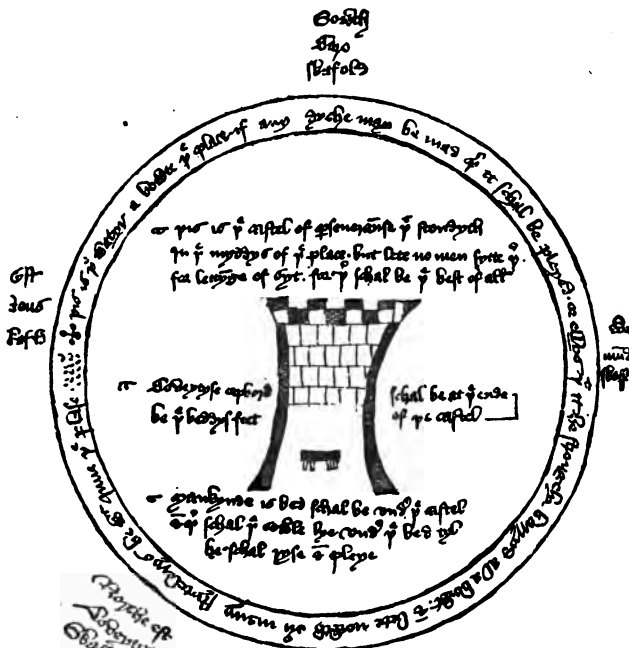 Sowth
Caro
skafold
þis is þe watyr a bowte þe place if any dyche may be mad þer it schal be pleyed or ellys þat it be strongely barryd al a bowt & lete nowth ouyr many stytelerys be wit Inne þe plase
Est
deus
skafold
þis is þe castel of perseueraunse þat stondyth
In þe myddys of þe place . but lete no men sytte þer
for lettynge of syt . for þer schal be þe best of all
Coveytyse copbord
be þe beddys feet
schal be at þe ende
of þe castel
Mankynde is bed schal be vndyr þe castel
& þer schal þe sowle lye vndyr þe bed tyl
he schal ryse & pleye
Northe est